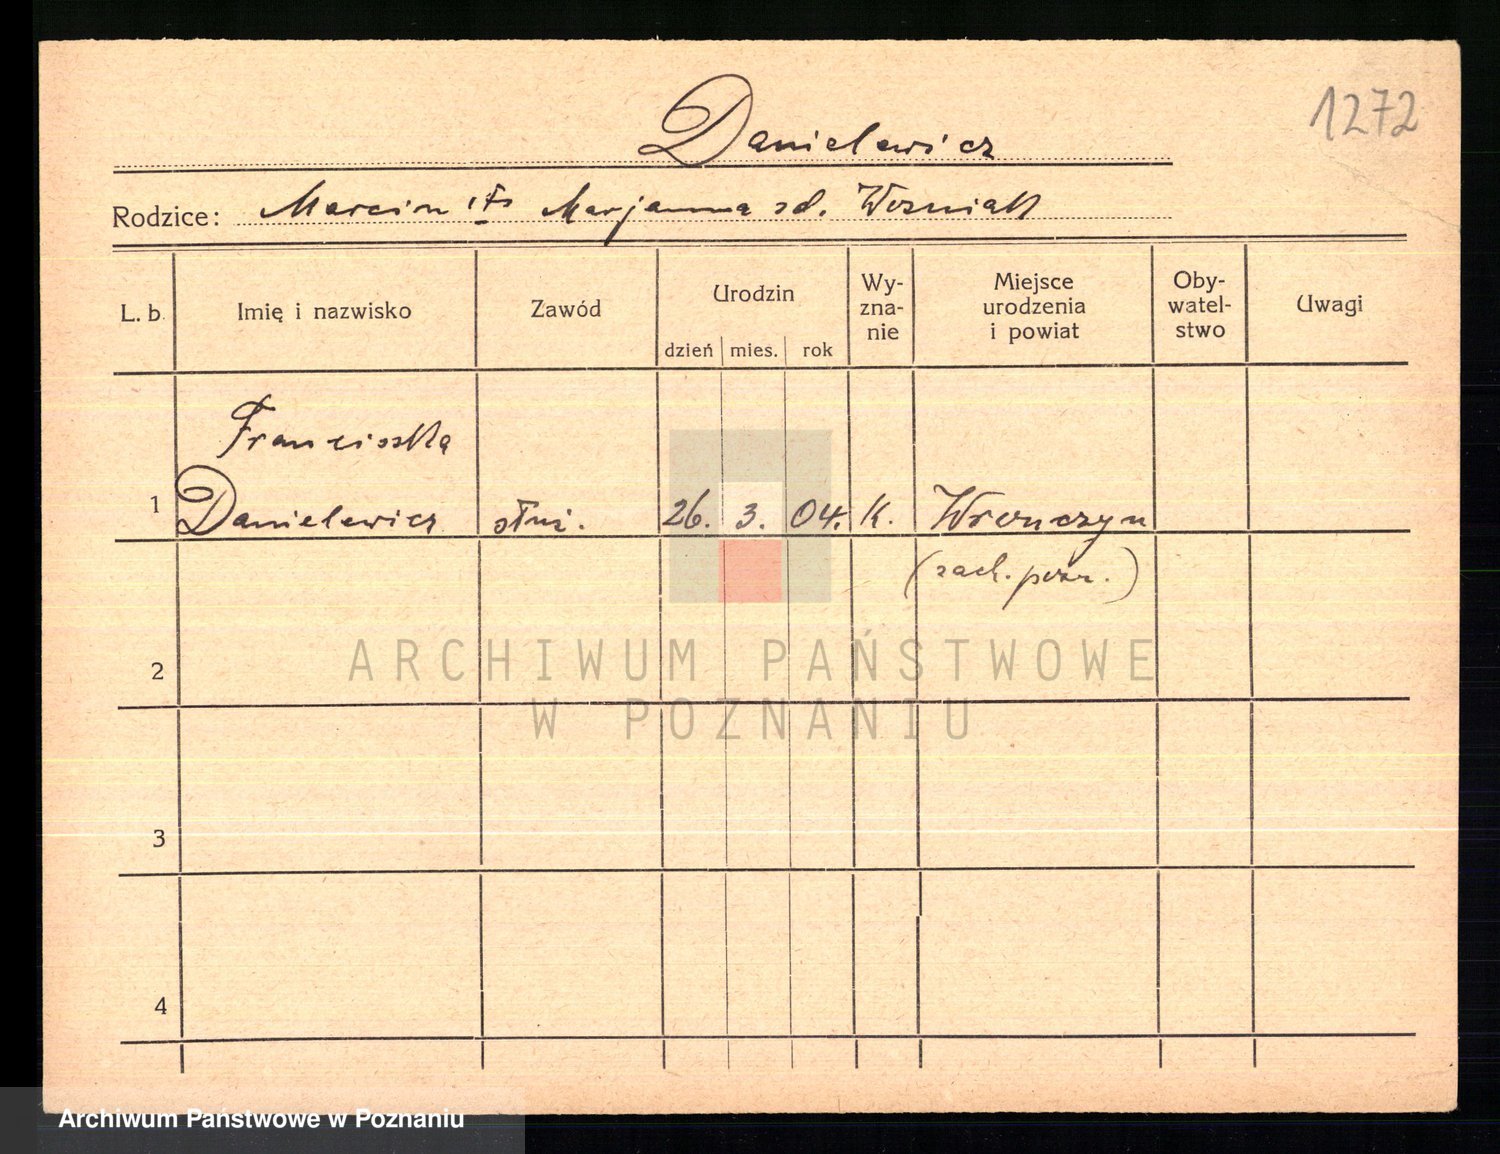 1272
Danielewicz
Rodzice: Marcin i Marjanna zd. Wozniak
L. b. Imię i nazwisko Zawód Urodzin dzień mies. rok Wy-zna-nie Miejsce urodzenia i powiat Oby-watel-stwo Uwagi
Franciszka
1 Danielewicz służ. 26. 3. 04. K. Wronczyn
(zach. pozn.)
2
ARCHIWUM PAŃSTWOWE
W POZNANIU
3
4
Archiwum Państwowe w Poznaniu